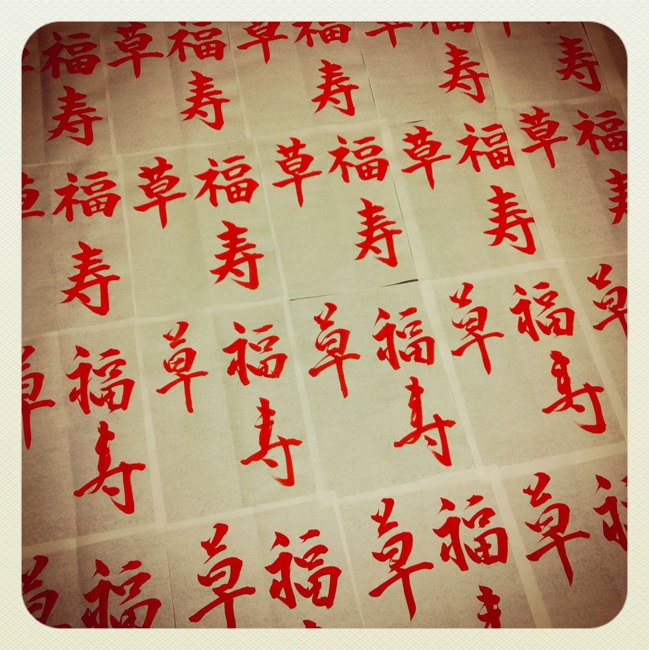 福寿
福寿
草
福寿
草
福寿
草
寿
福寿
草
福寿
草
福寿
草
福寿
草
福寿
草
福寿
草
福寿
草
福寿
草
福寿
草
草
福
草
福寿
草
福寿
草
福
草